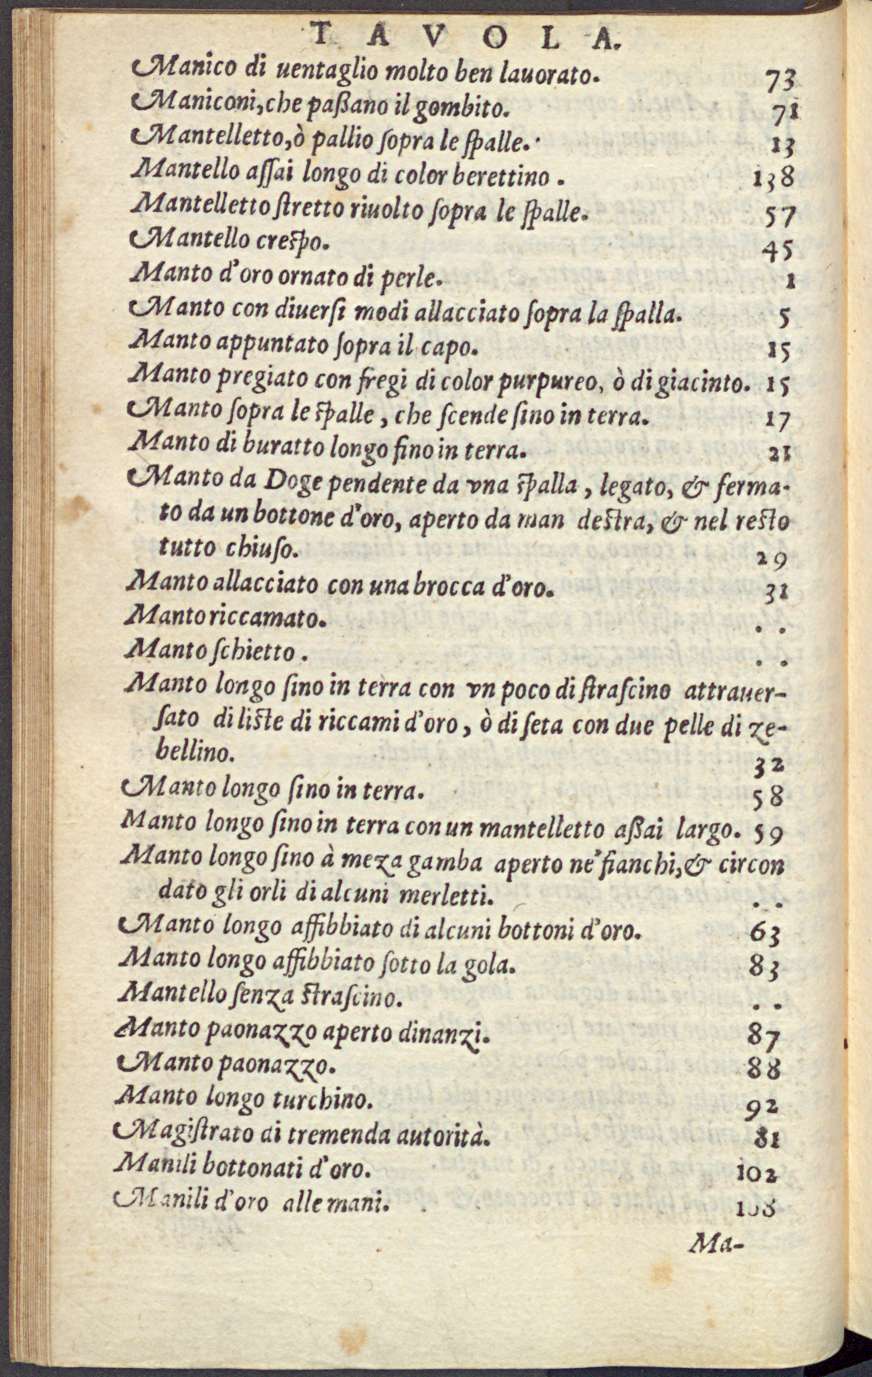 TAVOLA.
Manico di uentaglio molto ben lauorato. 73
Maniconi, che paßano il gombito. 71
Mantelletto, ò pallio ſopra le ſpalle. 13
Mantello aſſai longo di color berettino. 138
Mantelletto ſtretto riuolto ſopra le ſpalle. 57
Mantello creſpo. 45
Manto d'oro ornato di perle. 1
Manto con diuerſi modi allacciato ſopra la ſpalla. 5
Manto appuntato ſopra il capo. 15
Manto pregiato con fregi di color purpureo, ò di giacinto. 15
Manto ſopra le ſpalle, che ſcende ſino in terra. 17
Manto di buratto longo fino in terra. 21
Manto da Doge pendente da vna ſpalla, legato, & ferma-
to da un bottone d'oro, aperto da man deſtra, & nel reſto
tutto chiuſo. 29
Manto allacciato con una brocca d'oro. 31
Manto riccamato. . .
Manto ſchietto. . .
Manto longo ſino in terra con vn poco di ſtraſcino attrauer-
ſato di liſte di riccami d'oro, ò di ſeta con due pelle di ze-
bellino. 32
Manto longo ſino in terra. 58
Manto longo ſino in terra con un mantelletto aßai largo. 59
Manto longo ſino à meza gamba aperto ne' fianchi, & circon
dato gli orli di alcuni merletti. . .
Manto longo affibbiato di alcuni bottoni d'oro. 63
Manto longo affibbiato ſotto la gola. 83
Mantello ſenza ſtraſcino. . .
Manto paonazzo aperto dinanzi. 87
Manto paonazzo. 88
Manto longo turchino. 92
Magiſtrato di tremenda autorità. 81
Manili bottonati d'oro. 102
Manili d'oro alle mani. 108
Ma-